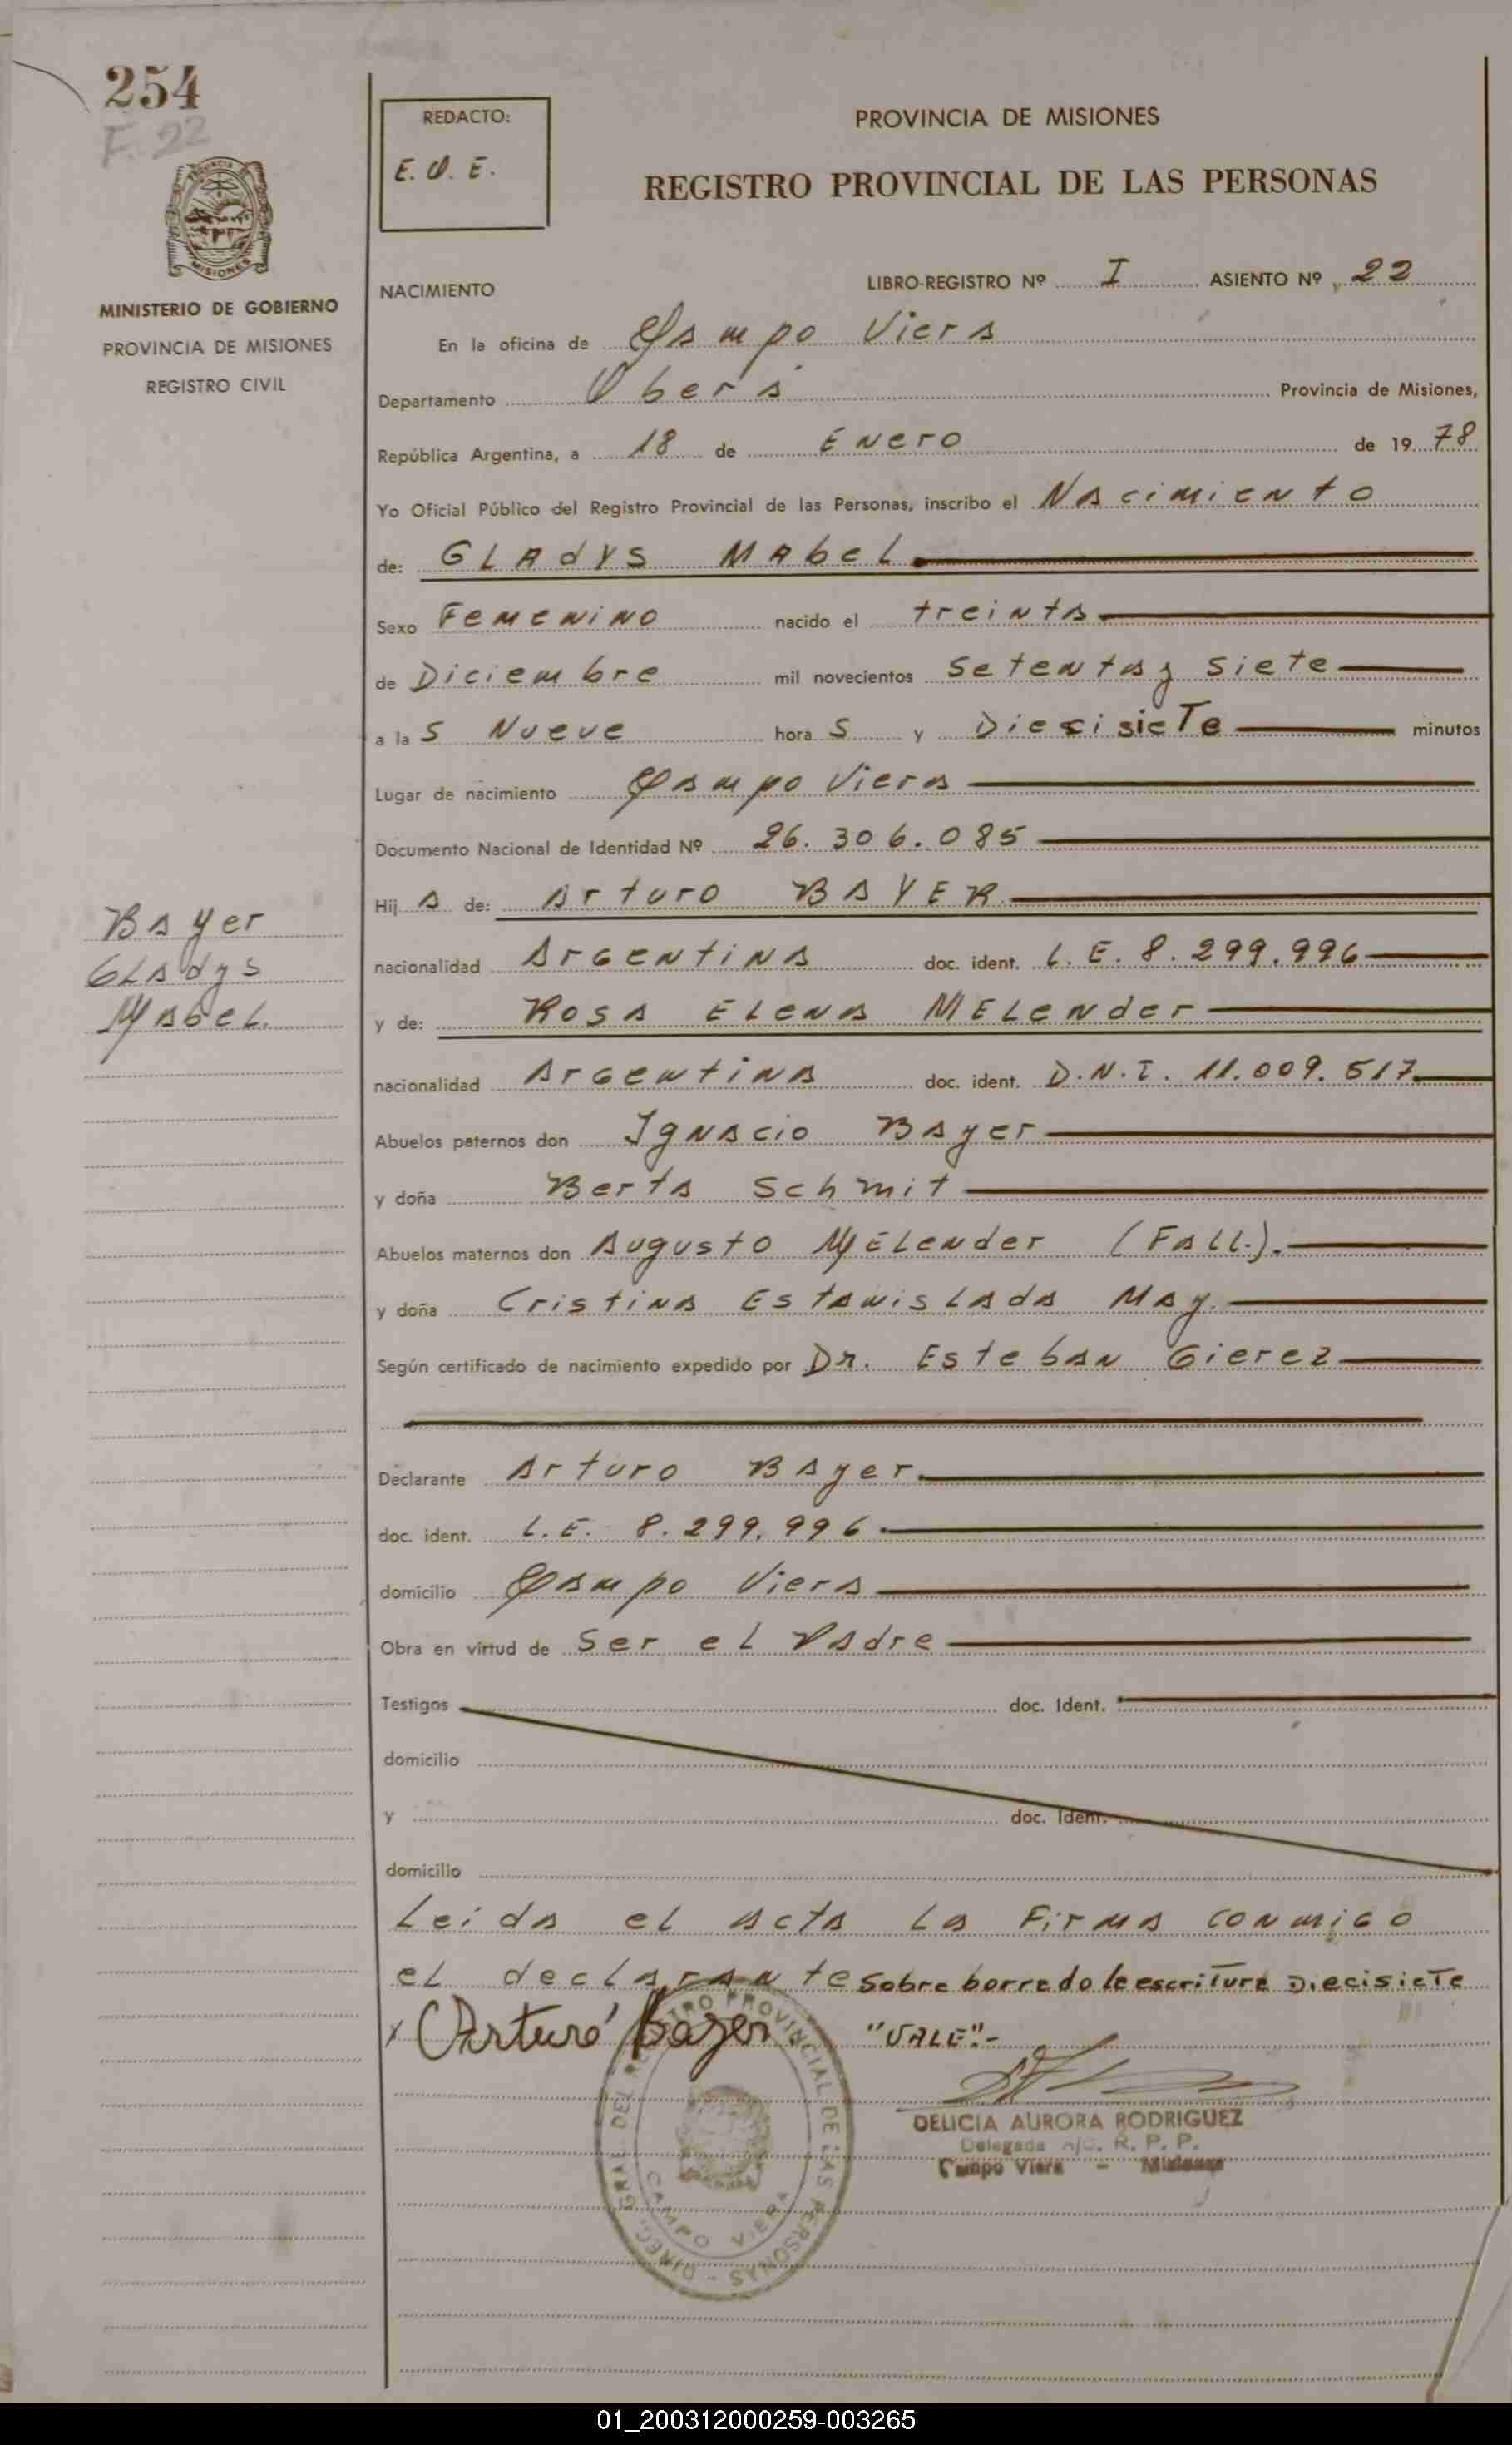 254
F. 22
PROVINCIA
MISIONES
MINISTERIO DE GOBIERNO
PROVINCIA DE MISIONES
REGISTRO CIVIL
REDACTO:
E. O. E.
PROVINCIA DE MISIONES
REGISTRO PROVINCIAL DE LAS PERSONAS
LIBRO-REGISTRO Nº I ASIENTO Nº 22
NACIMIENTO
En la oficina de Campo Viera
Departamento Oberá Provincia de Misiones,
República Argentina, a 18 de Enero de 19 78
Yo Oficial Público del Registro Provincial de las Personas, inscribo el Nacimiento
de: GLAdYS MAbeL
Sexo Femenino nacido el treinta
de Diciembre mil novecientos Setenta y Siete
a las Nueve horas y DiecisieTe minutos
Lugar de nacimiento Campo Viera
Documento Nacional de Identidad Nº 26.306.085
Hija de: Arturo BAYER
nacionalidad Argentina doc. ident. L.E. 8.299.996
y de: Rosa ELena MELender
nacionalidad Argentina doc. ident. D.N.I. 11.009.517
Abuelos paternos don Ignacio Bayer
y doña Berta Schmit
Abuelos maternos don Augusto MELender (Fall.).
y doña Cristina EstanisLada May.
Según certificado de nacimiento expedido por Dr. Esteban Gierez
Declarante Arturo Bayer.
doc. ident. L.E. 8.299.996.
domicilio Campo Viera
Obra en virtud de Ser eL Padre
Testigos doc. Ident.
domicilio
y doc. Ident.
domicilio
Leida el acta La Firma conmigo
eL declarante Sobre borrado le escritura DiecisieTe
x Arturo Bayer "VALE".-
DELICIA AURORA RODRIGUEZ
Delegada R. P. P.
Campo Viera - Misiones
DIRECC. GRAL DEL REGISTRO PROVINCIAL DE LAS PERSONAS
CAMPO VIERA
Bayer
GLAdys
MabeL.
01_200312000259-003265